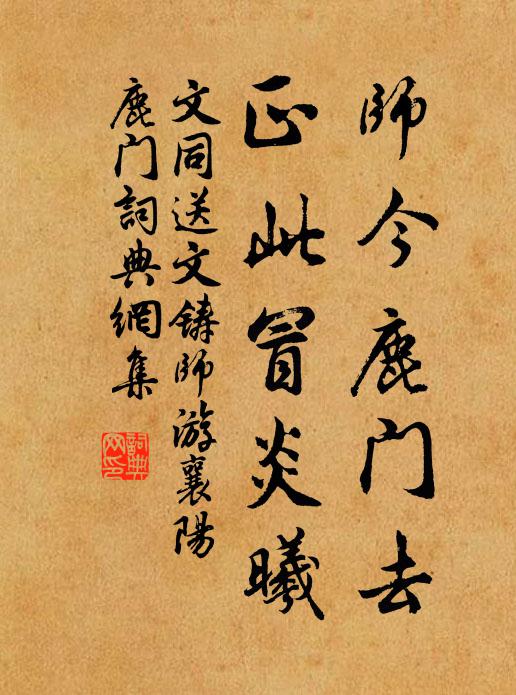 師今鹿门去
正此冒炎曦
文同送文鑄師游襄陽
鹿门詞典網集
詞典网印